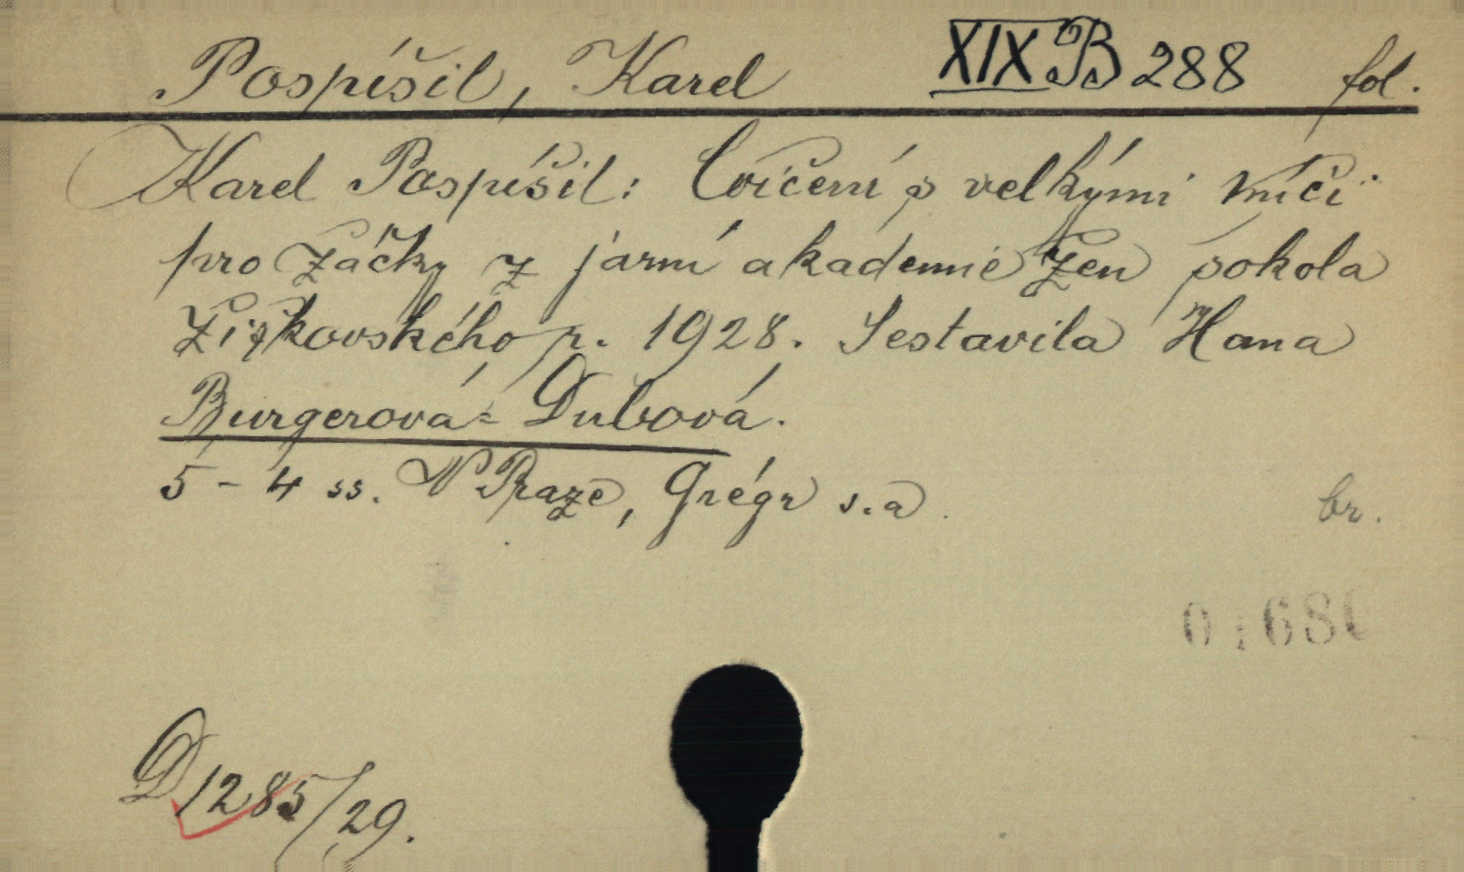 Pospíšil, Karel XIX B 288 fol.
Karel Pospíšil: Cvičení s velkými míči
pro žačky z jarní akademie žen sokola
Žižkovského r. 1928. Sestavila Hana
Burgerová-Dubová.
5 - 4 ss. V Praze, Grégr s.a.
br.
D 1285/29.